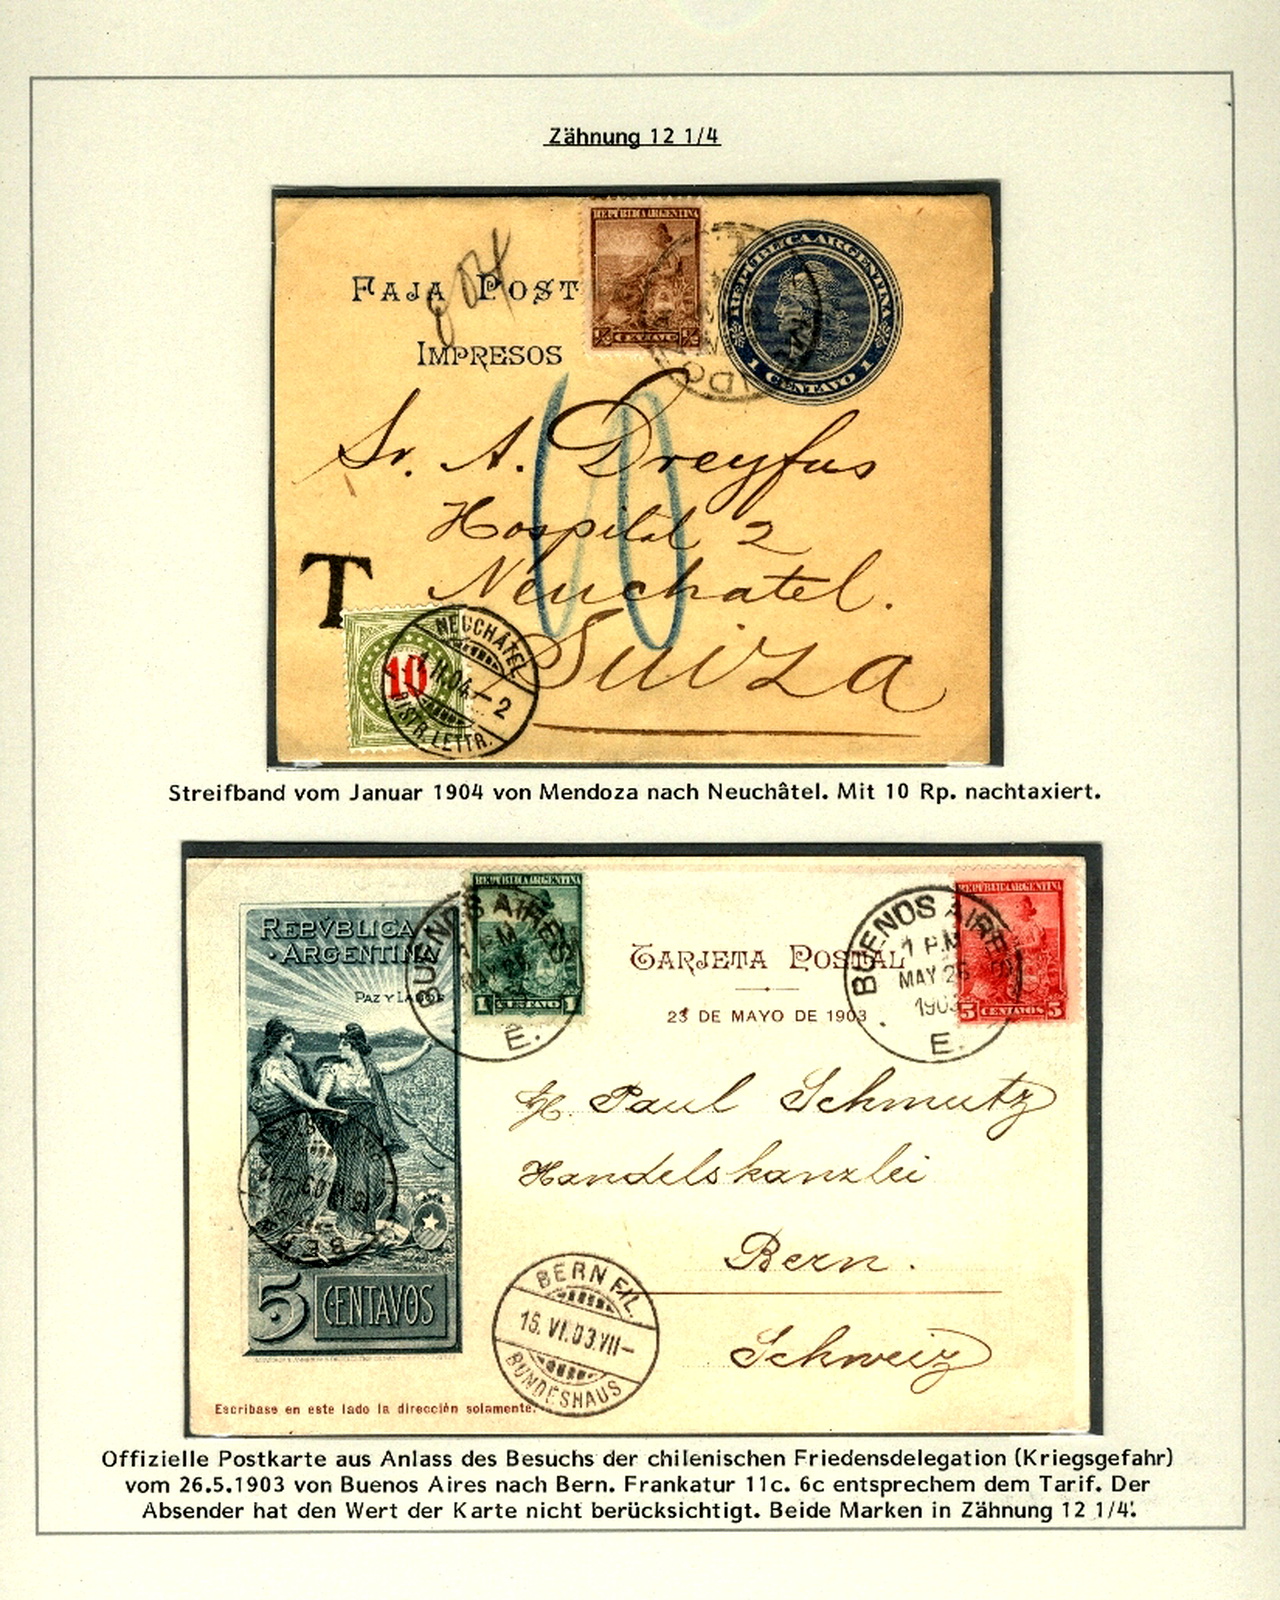 Zähnung 12 1/4
REPÚBLICA ARGENTINA
½ CENTAVO ½
REPÚBLICA ARGENTINA
1 CENTAVO 1
FAJA POST
IMPRESOS
10
Sr. A. Dreyfus
Hospital 2
Neuchatel.
Suiza
T
10
NEUCHÂTEL
1.II.04.-2
DISTR. LETTR.
Streifband vom Januar 1904 von Mendoza nach Neuchâtel. Mit 10 Rp. nachtaxiert.
REPÚBLICA ARGENTINA
1 CENTAVO 1
BUENOS AIRES
1 P.M
MAY 26
E.
REPÚBLICA ARGENTINA
5 CENTAVOS 5
BUENOS AIRES
1 P.M
MAY 26
1903
E.
REPVBLICA
·ARGENTINA
PAZ Y LABOR
5 CENTAVOS
TARJETA POSTAL
25 DE MAYO DE 1903
H. Paul Schmutz
Handelskanzlei
Bern.
Schweiz
BERN F/L.
15. VI.03.VII-
BUNDESHAUS
Escríbase en este lado la dirección solamente.
Offizielle Postkarte aus Anlass des Besuchs der chilenischen Friedensdelegation (Kriegsgefahr)
vom 26.5.1903 von Buenos Aires nach Bern. Frankatur 11c. 6c entsprechem dem Tarif. Der
Absender hat den Wert der Karte nicht berücksichtigt. Beide Marken in Zähnung 12 1/4'.